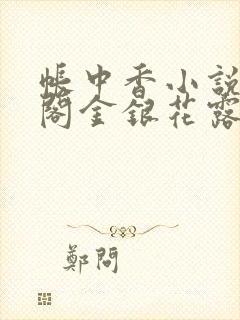 帳中香小説
閣金銀花露
鄭問